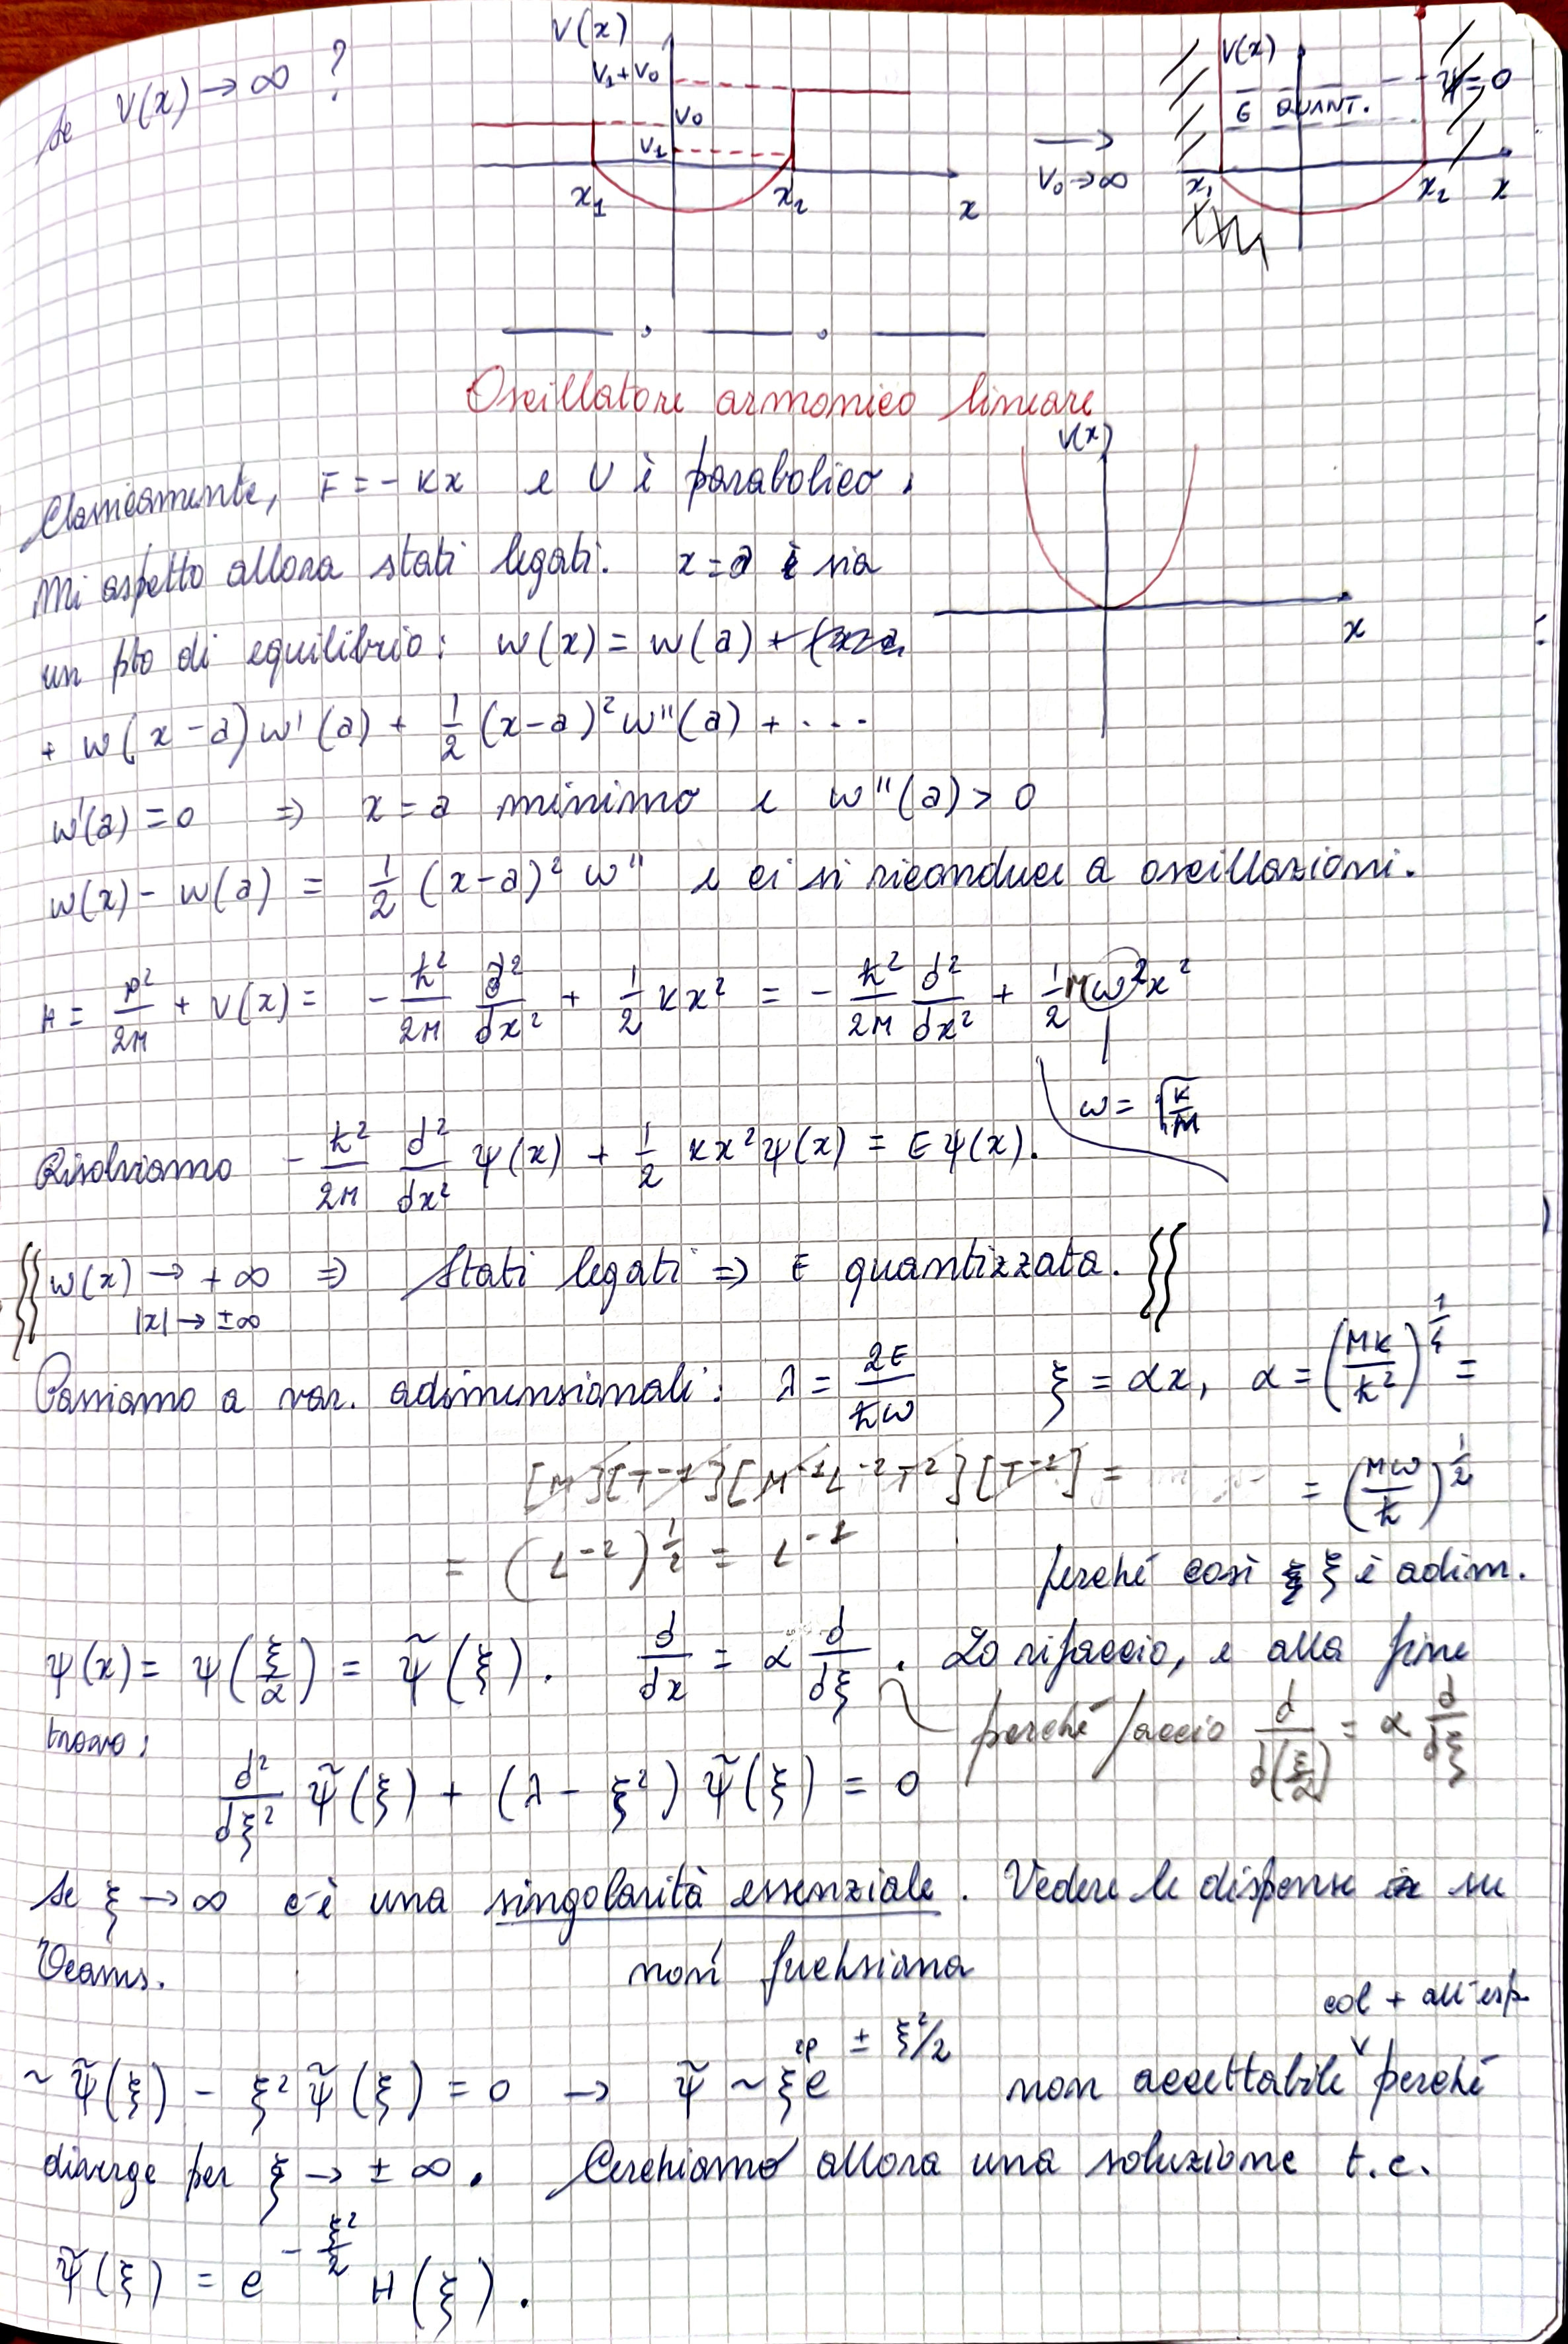 Se V(x) → ∞ ?
V(x)
V₁+V₀
V₀
V₁
x₁ x₂ x
→
V₀→∞
V(x)
E QUANT. ψ=0
x₁ x₂ x
Oscillatore armonico lineare
Classicamente, F = - Kx e V è parabolico.
V(x)
x
Mi aspetto allora stati legati. x=a è sia
un pto di equilibrio: W(x) = W(a) +
+ W(x-a)W'(a) + 1/2 (x-a)² W''(a) + ...
W'(a) = 0 ⇒ x = a minimo e W''(a) > 0
W(x) - W(a) = 1/2 (x-a)² W'' e ci si riconduce a oscillazioni.
H = p²/2M + V(x) = - ħ²/2M d²/dx² + 1/2 Kx² = - ħ²/2M d²/dx² + 1/2 Mω²x²
ω = √(K/M)
Risolviamo - ħ²/2M d²/dx² ψ(x) + 1/2 Kx²ψ(x) = Eψ(x).
W(x) → +∞ ⇒ Stati legati ⇒ E quantizzata.
|x| → ±∞
Passiamo a var. adimensionali: λ = 2E/ħω ξ = αx, α = (MK/ħ²)^1/4 =
[M][T⁻¹][M⁻¹L⁻²T²][T⁻²] = = (Mω/ħ)^1/2
= (L⁻²)^1/2 = L⁻¹ perché così ξ è adim.
ψ(x) = ψ(ξ/α) = ψ̃(ξ). d/dx = α d/dξ. Lo rifaccio, e alla fine
trovo: perché faccio d/d(ξ/α) = α d/dξ
d²/dξ² ψ̃(ξ) + (λ - ξ²) ψ̃(ξ) = 0
Se ξ → ∞ c'è una singolarità essenziale. Vedere le dispense su
Teams. non fuchsiana
col + all'esp.
~ ψ̃(ξ) - ξ² ψ̃(ξ) = 0 → ψ̃ ~ ξ^p e^(± ξ²/2) non accettabile perché
diverge per ξ → ±∞. Cerchiamo allora una soluzione t.c.
ψ̃(ξ) = e^(-ξ²/2) H(ξ).